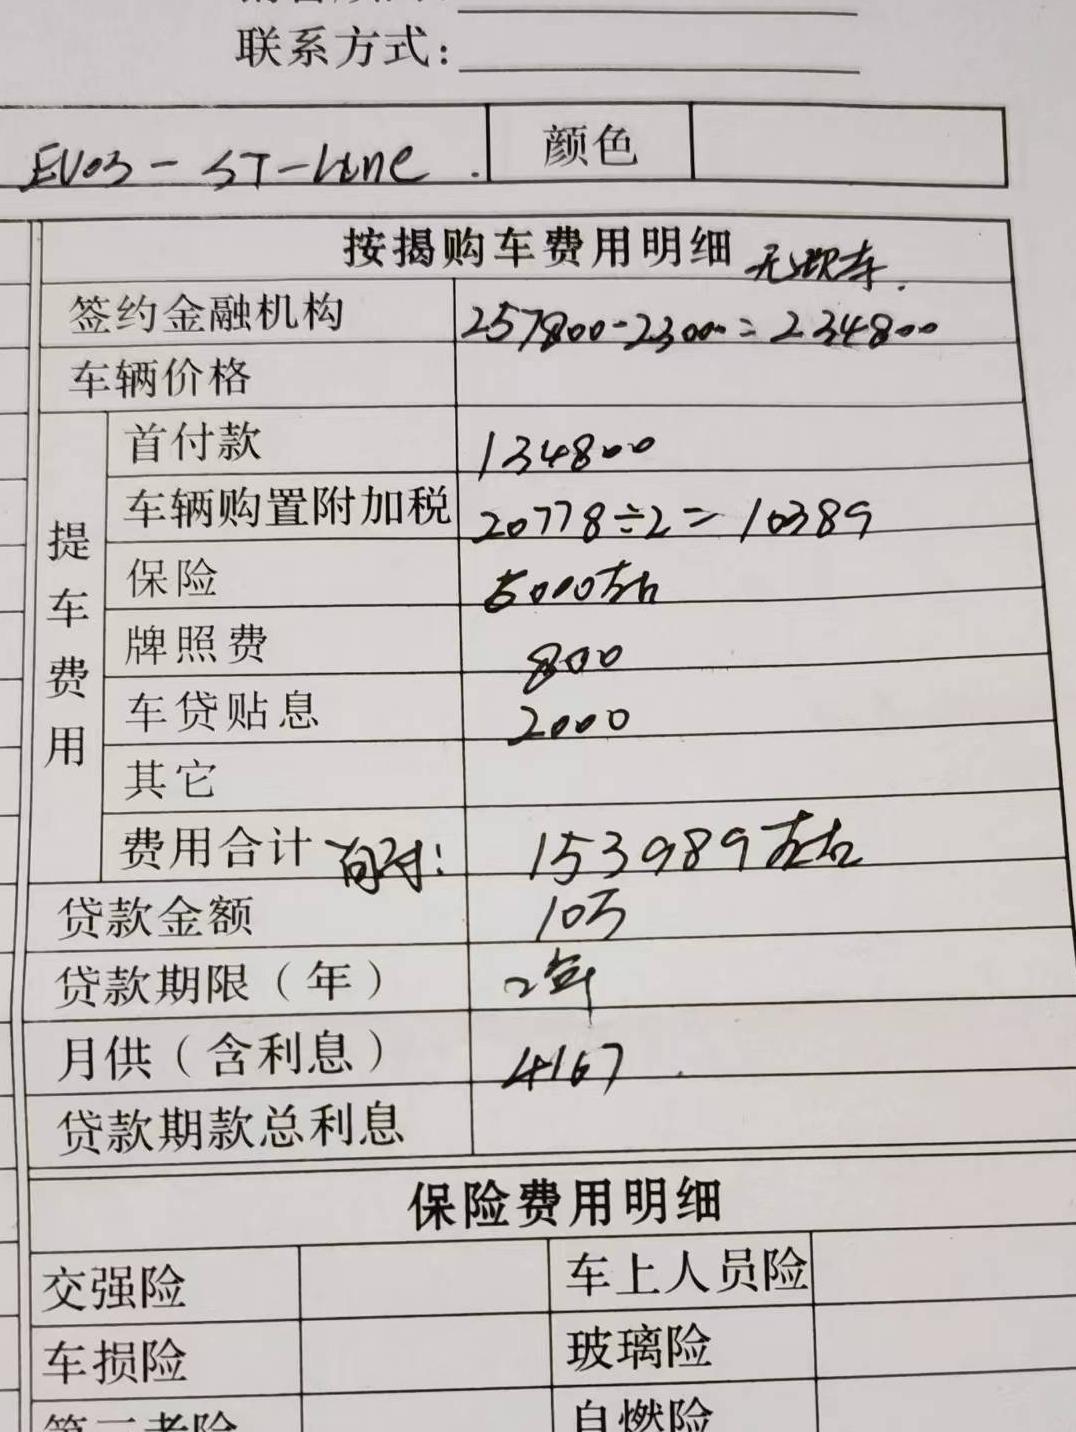 联系方式:
EVOS - ST-Line. 颜色
按揭购车费用明细 无现车.
签约金融机构 257800-23000=234800
车辆价格
提车费用
首付款 134800
车辆购置附加税 20778÷2=10389
保险 6000左右
牌照费 800
车贷贴息 2000
其它
费用合计 首付: 153989左右
贷款金额 10万
贷款期限(年) 2年
月供(含利息) 4167
贷款期款总利息
保险费用明细
交强险 车上人员险
车损险 玻璃险
第三者险 自燃险